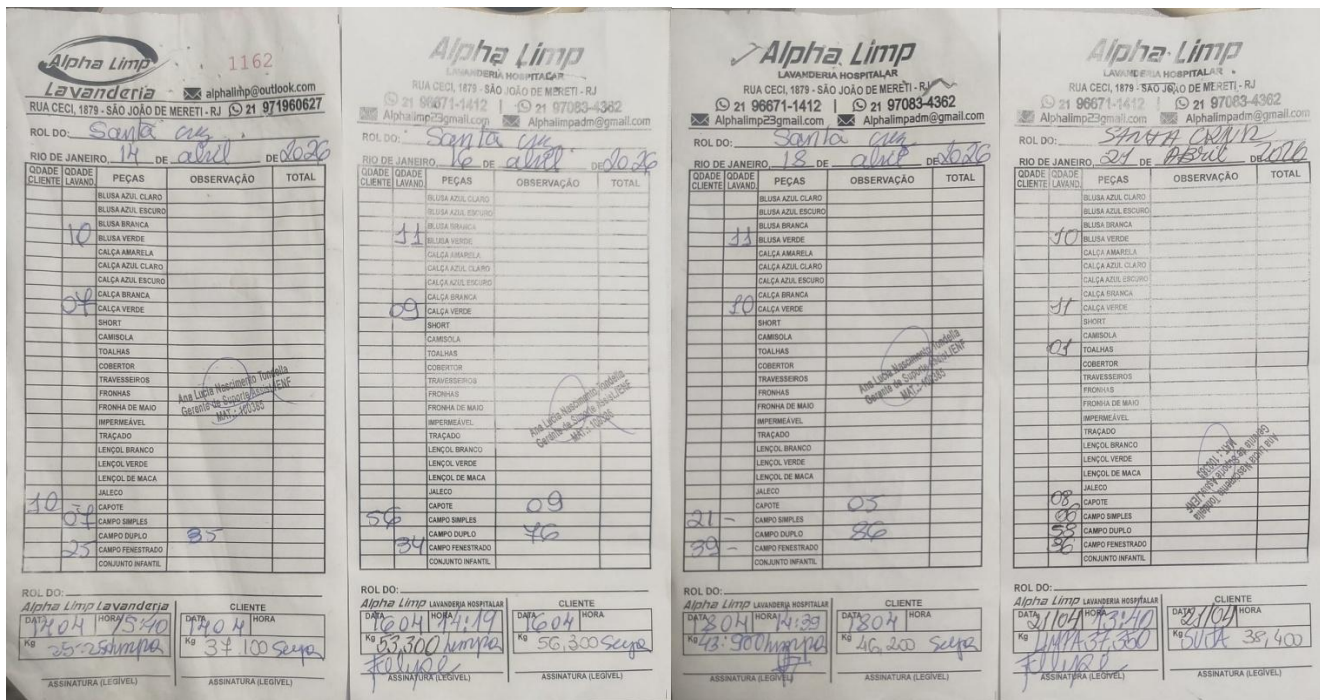 Alpha Limp
1162
Lavanderia
alphalimp@outlook.com
RUA CECI, 1879 - SÃO JOÃO DE MERETI - RJ 21 971960627
ROL DO: Santa cruz
RIO DE JANEIRO, 14 DE abril DE 2026
QDADE CLIENTE QDADE LAVAND. PEÇAS OBSERVAÇÃO TOTAL
BLUSA AZUL CLARO
BLUSA AZUL ESCURO
BLUSA BRANCA
10 BLUSA VERDE
CALÇA AMARELA
CALÇA AZUL CLARO
CALÇA AZUL ESCURO
CALÇA BRANCA
07 CALÇA VERDE
SHORT
CAMISOLA
TOALHAS
COBERTOR
TRAVESSEIROS
FRONHAS
FRONHA DE MAIO
IMPERMEÁVEL
TRAÇADO
LENÇOL BRANCO
LENÇOL VERDE
LENÇOL DE MACA
JALECO
10 CAPOTE
07 CAMPO SIMPLES
CAMPO DUPLO 35
25 CAMPO FENESTRADO
CONJUNTO INFANTIL
Ana Lucia Nascimento Tondella
Gerente de Suporte Assis/ENF
MAT.: 100385
ROL DO:
Alpha Limp Lavanderia CLIENTE
DATA 1404 HORA 15:40 DATA 1404 HORA
Kg limpa Kg 37.100 Suja
ASSINATURA (LEGÍVEL) ASSINATURA (LEGÍVEL)
Alpha Limp
LAVANDERIA HOSPITALAR
RUA CECI, 1879 - SÃO JOÃO DE MERETI - RJ
21 96671-1412 | 21 97083-4362
Alphalimp23gmail.com Alphalimpadm@gmail.com
ROL DO: Santa cruz
RIO DE JANEIRO, 16 DE abril DE 2026
QDADE CLIENTE QDADE LAVAND. PEÇAS OBSERVAÇÃO TOTAL
BLUSA AZUL CLARO
BLUSA AZUL ESCURO
BLUSA BRANCA
11 BLUSA VERDE
CALÇA AMARELA
CALÇA AZUL CLARO
CALÇA AZUL ESCURO
CALÇA BRANCA
09 CALÇA VERDE
SHORT
CAMISOLA
TOALHAS
COBERTOR
TRAVESSEIROS
FRONHAS
FRONHA DE MAIO
IMPERMEÁVEL
TRAÇADO
LENÇOL BRANCO
LENÇOL VERDE
LENÇOL DE MACA
JALECO
CAPOTE 09
56 CAMPO SIMPLES
CAMPO DUPLO 76
34 CAMPO FENESTRADO
CONJUNTO INFANTIL
Ana Lucia Nascimento Tondella
Gerente de Suporte Assis/ENF
MAT.: 100385
ROL DO:
Alpha Limp LAVANDERIA HOSPITALAR CLIENTE
DATA 1604 HORA 14:19 DATA 1604 HORA
Kg 53,300 limpa Kg 56,300 Suja
Felipe
ASSINATURA (LEGÍVEL) ASSINATURA (LEGÍVEL)
Alpha Limp
LAVANDERIA HOSPITALAR
RUA CECI, 1879 - SÃO JOÃO DE MERETI - RJ
21 96671-1412 | 21 97083-4362
Alphalimp23gmail.com Alphalimpadm@gmail.com
ROL DO: Santa cruz
RIO DE JANEIRO, 18 DE abril DE 2026
QDADE CLIENTE QDADE LAVAND. PEÇAS OBSERVAÇÃO TOTAL
BLUSA AZUL CLARO
BLUSA AZUL ESCURO
BLUSA BRANCA
11 BLUSA VERDE
CALÇA AMARELA
CALÇA AZUL CLARO
CALÇA AZUL ESCURO
CALÇA BRANCA
10 CALÇA VERDE
SHORT
CAMISOLA
TOALHAS
COBERTOR
TRAVESSEIROS
FRONHAS
FRONHA DE MAIO
IMPERMEÁVEL
TRAÇADO
LENÇOL BRANCO
LENÇOL VERDE
LENÇOL DE MACA
JALECO
CAPOTE 05
21 - CAMPO SIMPLES
CAMPO DUPLO 86
39 - CAMPO FENESTRADO
CONJUNTO INFANTIL
Ana Lucia Nascimento Tondella
Gerente de Suporte Assis/ENF
MAT.: 100385
ROL DO:
Alpha Limp LAVANDERIA HOSPITALAR CLIENTE
DATA 1804 HORA 14:39 DATA 1804 HORA
Kg 43:900 limpa Kg 46,200 Suja
ASSINATURA (LEGÍVEL) ASSINATURA (LEGÍVEL)
Alpha Limp
LAVANDERIA HOSPITALAR
RUA CECI, 1879 - SÃO JOÃO DE MERETI - RJ
21 96671-1412 | 21 97083-4362
Alphalimp23gmail.com Alphalimpadm@gmail.com
ROL DO: SANTA CRUZ
RIO DE JANEIRO, 21 DE ABRIL DE 2026
QDADE CLIENTE QDADE LAVAND. PEÇAS OBSERVAÇÃO TOTAL
BLUSA AZUL CLARO
BLUSA AZUL ESCURO
BLUSA BRANCA
10 BLUSA VERDE
CALÇA AMARELA
CALÇA AZUL CLARO
CALÇA AZUL ESCURO
CALÇA BRANCA
11 CALÇA VERDE
SHORT
CAMISOLA
01 TOALHAS
COBERTOR
TRAVESSEIROS
FRONHAS
FRONHA DE MAIO
IMPERMEÁVEL
TRAÇADO
LENÇOL BRANCO
LENÇOL VERDE
LENÇOL DE MACA
JALECO
08 CAPOTE
CAMPO SIMPLES
CAMPO DUPLO
CAMPO FENESTRADO
CONJUNTO INFANTIL
Ana Lucia Nascimento Tondella
Gerente de Suporte Assis/ENF
MAT.: 100385
ROL DO:
Alpha Limp LAVANDERIA HOSPITALAR CLIENTE
DATA 21/04 HORA 13:40 DATA 21/04 HORA
Kg LIMPA 37,350 Kg SUJA 38,400
Felipe
ASSINATURA (LEGÍVEL) ASSINATURA (LEGÍVEL)